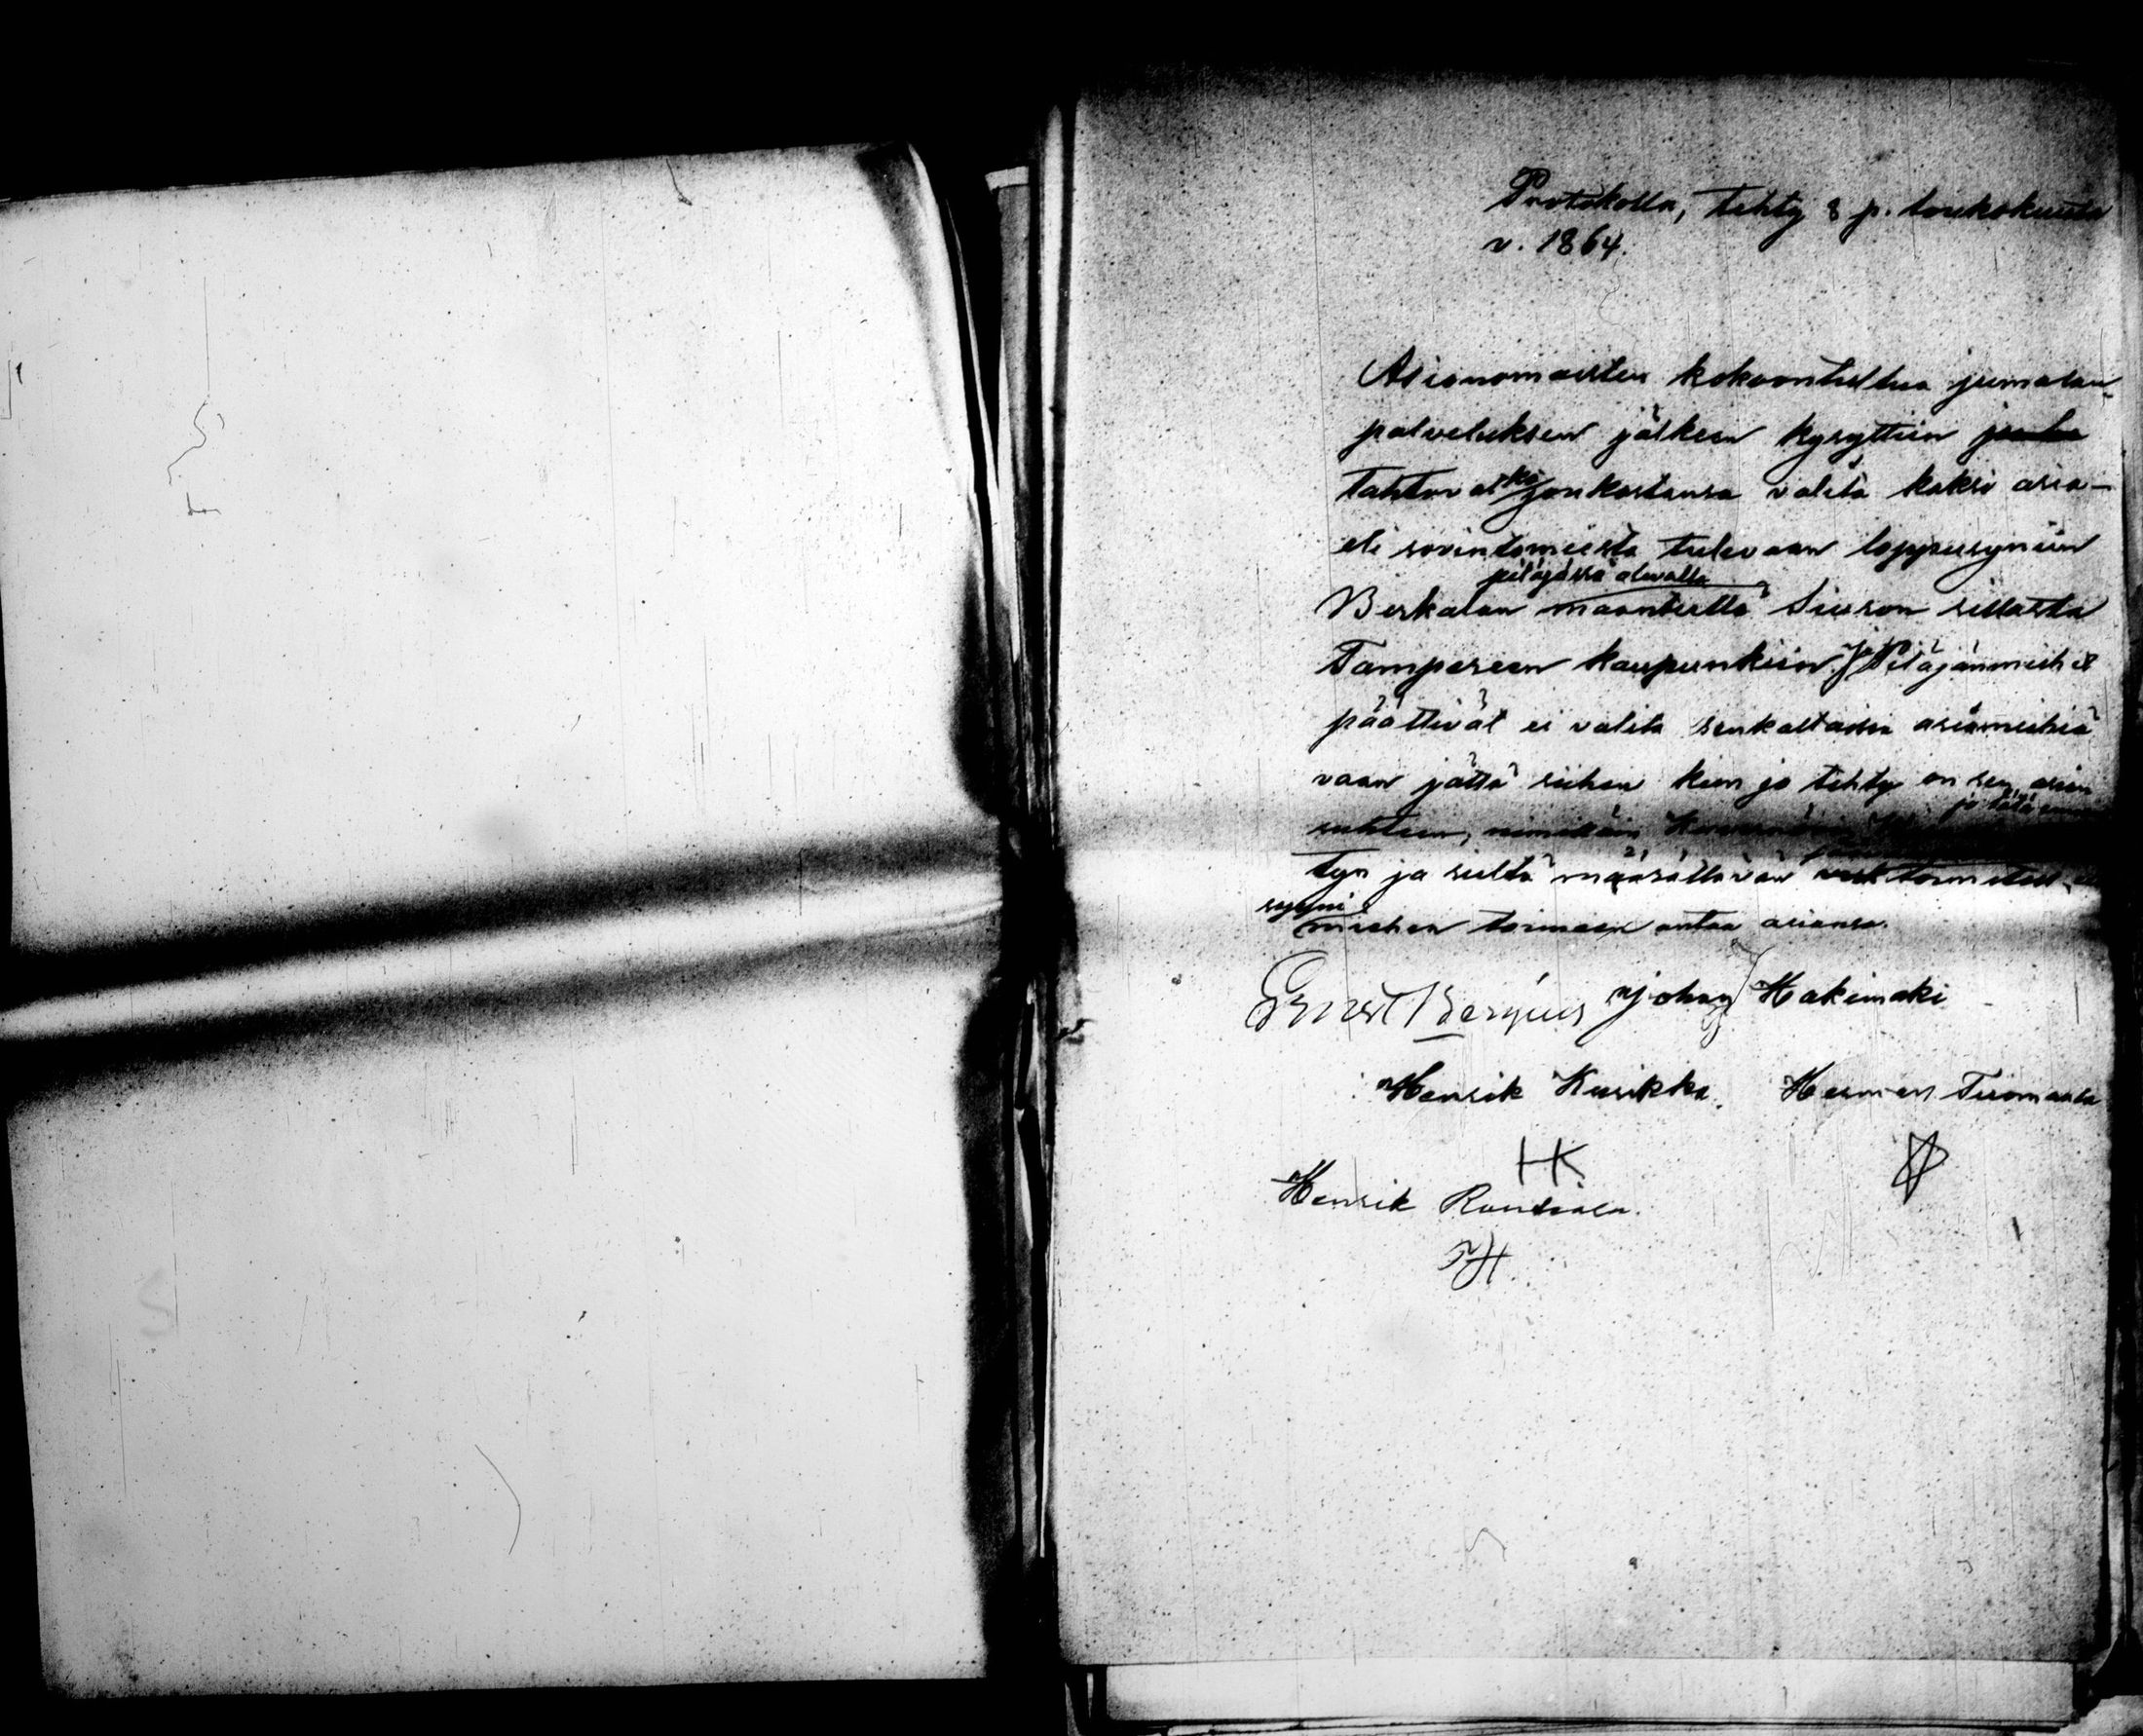 Protokolla, tehty 8 p. toukokuuta
v. 1864.
Asianomaisten kokoontultua jumalan-
palveluksen jälkeen kysyttiin
tahtovatko joukostansa valita kaksi asia-
eli sovintomiestä tulevaan loppusyniin
pitäjässä olevalla
Birkalan maantiellä Siuron sillasta
Tampereen kaupunkiin, ja Pitäjänmiehet
päättivät ei valita senkaltaisia asiamiehiä
vaan jättä siihen kun jo tehty on sen asian
suhteen, nimittäin
tyn ja sieltä määrättävän toimitus
syyni
miehen toimeen antaa asiansa.
Ernst Bergius Johan Hakimaki
Henrik Kusikka. Herman Tuomaala
HK
Henrik Rantsala.